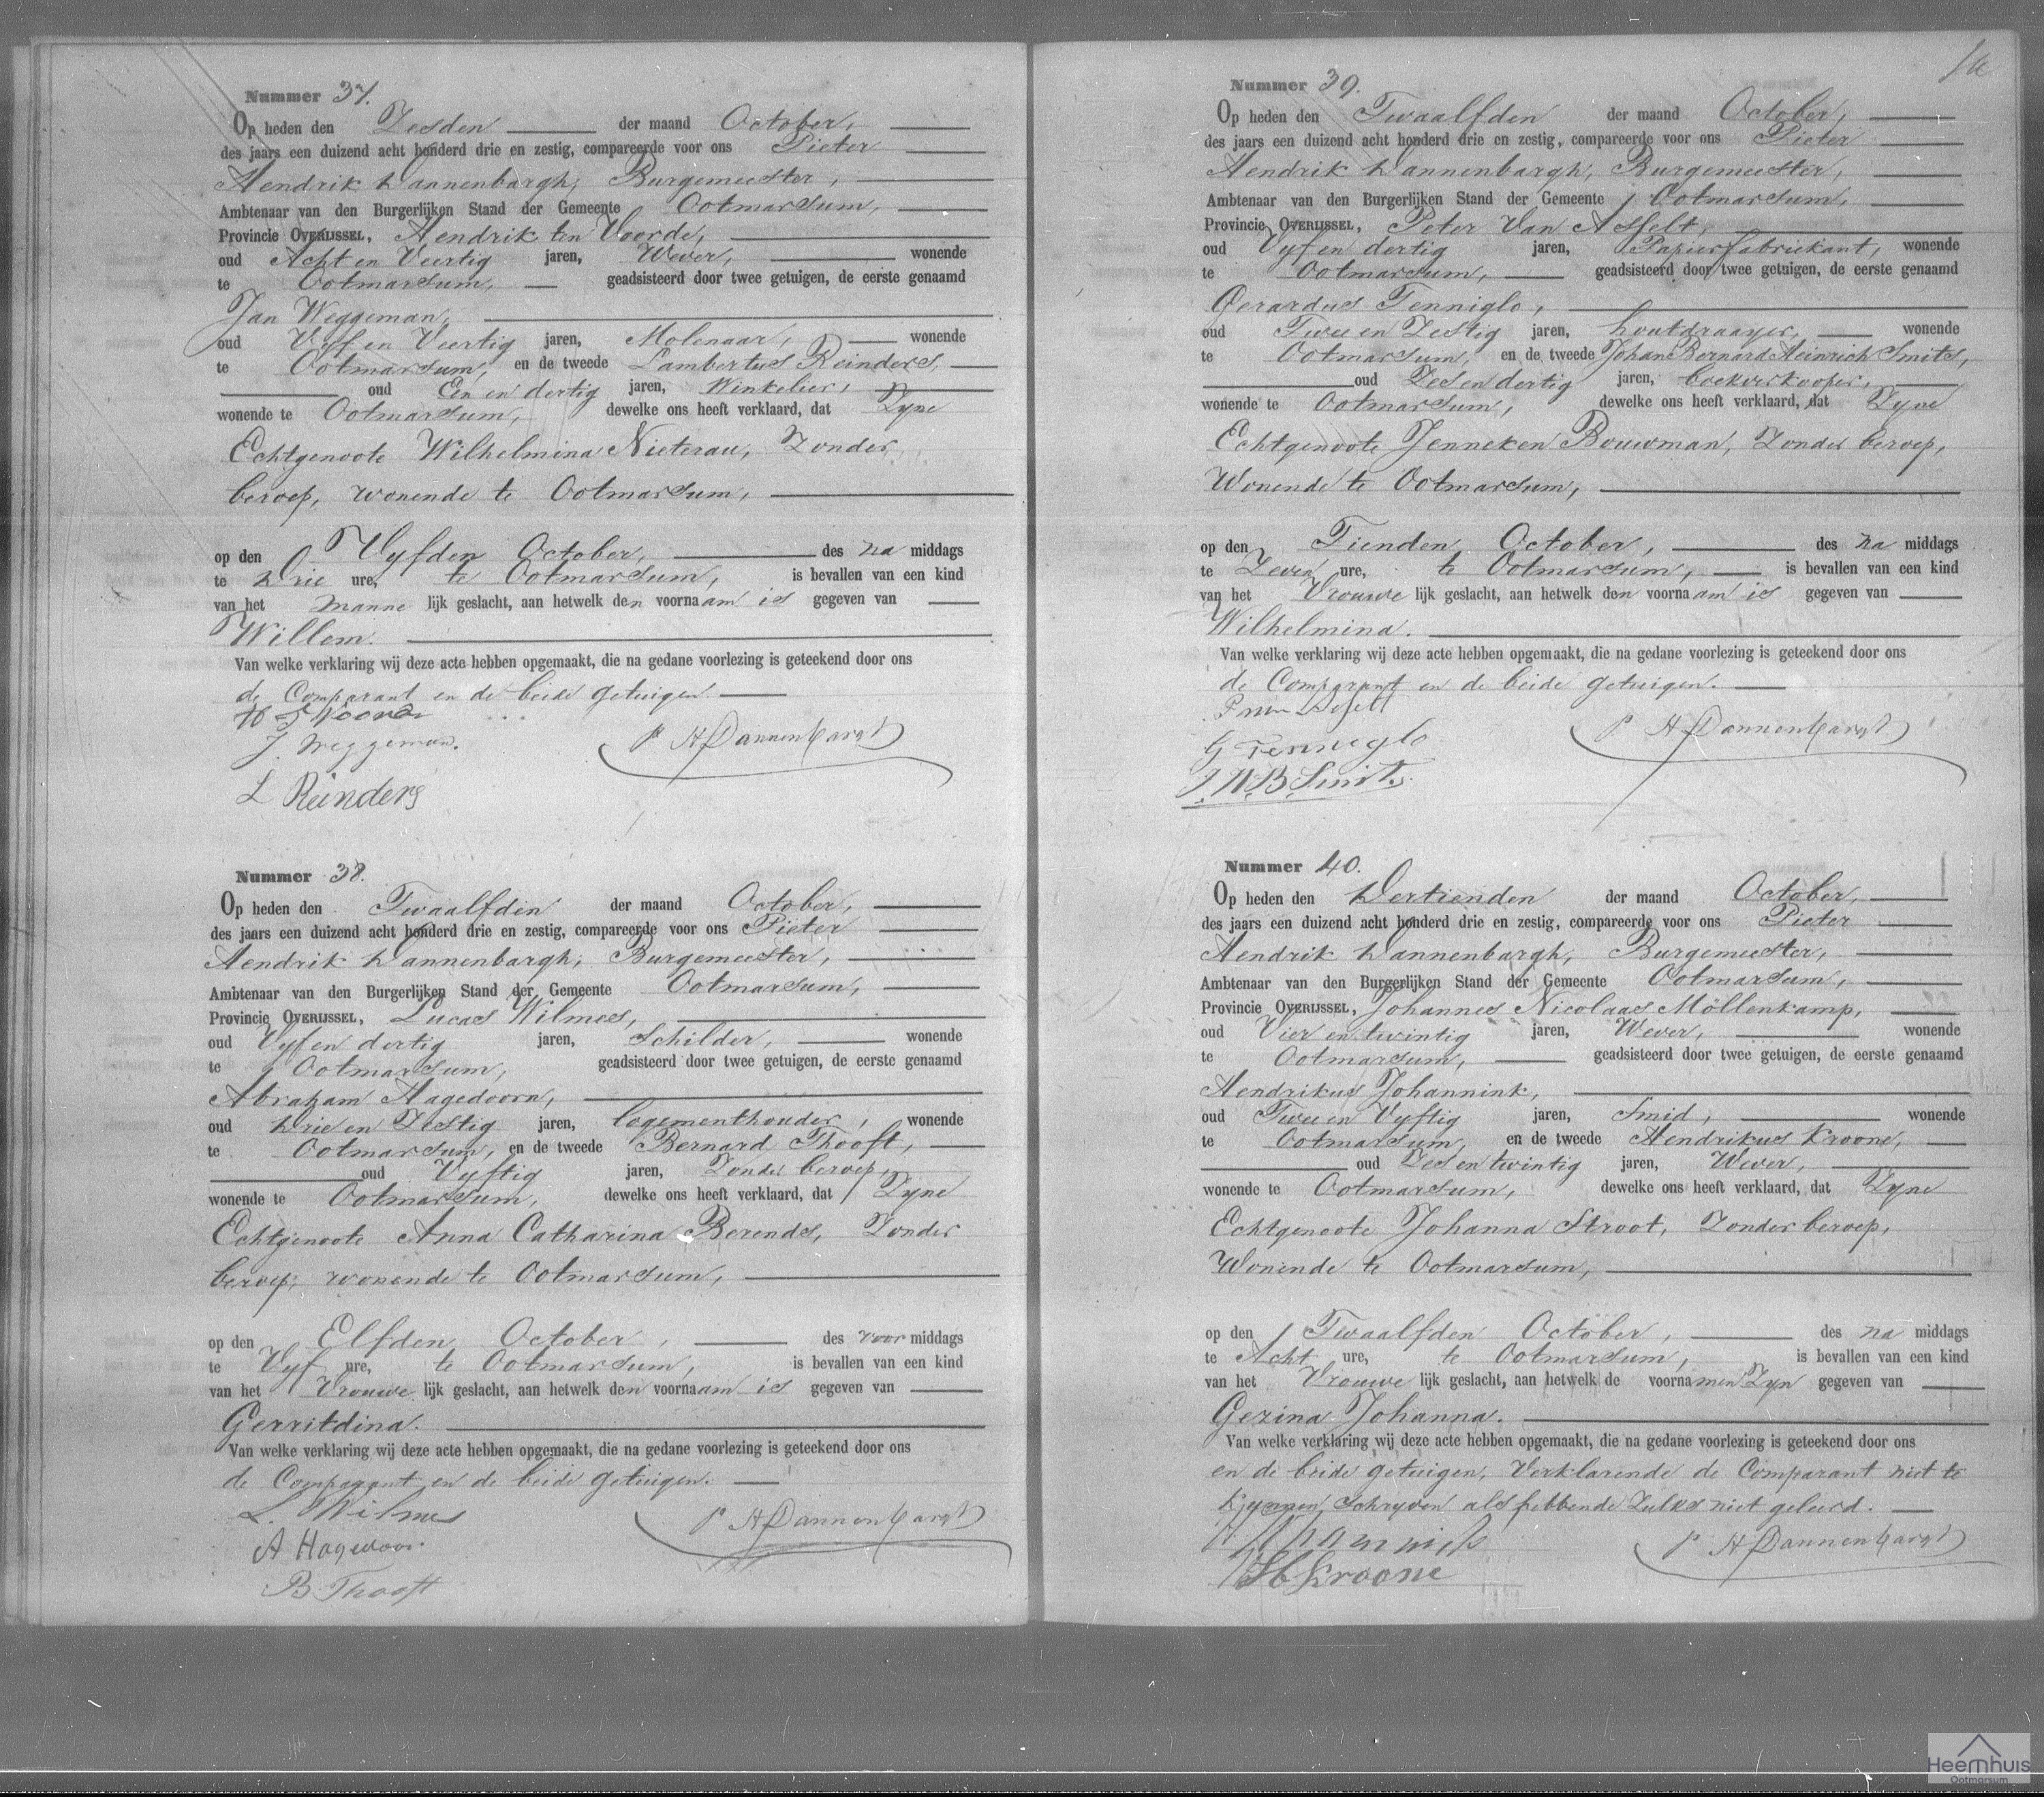 Nummer 37.
Op heden den Zesden der maand October,
des jaars een duizend acht honderd drie en zestig, compareerde voor ons Pieter
Hendrik Dannenbargh, Burgemeester,
Ambtenaar van den Burgerlijken Stand der Gemeente Ootmarsum,
Provincie OVERIJSSEL, Hendrik ten Voorde,
oud Acht en Veertig jaren, Wever, wonende
te Ootmarsum, geadsisteerd door twee getuigen, de eerste genaamd
Jan Weggeman,
oud Vyf en Veertig jaren, Molenaar, wonende
te Ootmarsum, en de tweede Lambertus Reinders,
oud Een en dertig jaren, Winkelier,
wonende te Ootmarsum, dewelke ons heeft verklaard, dat Zyne
Echtgenoote Wilhelmina Nieterau, Zonder
beroep, wonende te Ootmarsum,
op den Vyfden October, des na middags
te Drie ure, te Ootmarsum, is bevallen van een kind
van het Manne lijk geslacht, aan hetwelk den voornaam is gegeven van
Willem.
Van welke verklaring wij deze acte hebben opgemaakt, die na gedane voorlezing is geteekend door ons
de Comparant en de beide getuigen.
H T Voorde
J. Weggeman. P H Dannenbargh
L Reinders
Nummer 38.
Op heden den Twaalfden der maand October,
des jaars een duizend acht honderd drie en zestig, compareerde voor ons Pieter
Hendrik Dannenbargh, Burgemeester,
Ambtenaar van den Burgerlijken Stand der Gemeente Ootmarsum,
Provincie OVERIJSSEL, Lucas Wilmes,
oud Vyf en dertig jaren, Schilder, wonende
te Ootmarsum, geadsisteerd door twee getuigen, de eerste genaamd
Abraham Hagedoorn,
oud Drie en Zestig jaren, logementhouder, wonende
te Ootmarsum, en de tweede Bernard Thooft,
oud Vyftig jaren, Zonder beroep,
wonende te Ootmarsum, dewelke ons heeft verklaard, dat Zyne
Echtgenoote Anna Catharina Berends, Zonder
beroep, wonende te Ootmarsum,
op den Elfden October, des voor middags
te Vyf ure, te Ootmarsum, is bevallen van een kind
van het Vrouwe lijk geslacht, aan hetwelk den voornaam is gegeven van
Gerritdina.
Van welke verklaring wij deze acte hebben opgemaakt, die na gedane voorlezing is geteekend door ons
de Comparant en de beide getuigen.
L. Wilmes P H Dannenbargh
A Hagedoor
B Thooft
Nummer 39.
Op heden den Twaalfden der maand October,
des jaars een duizend acht honderd drie en zestig, compareerde voor ons Pieter
Hendrik Dannenbargh, Burgemeester,
Ambtenaar van den Burgerlijken Stand der Gemeente Ootmarsum,
Provincie OVERIJSSEL, Peter Van Asselt,
oud Vyf en dertig jaren, Papierfabriekant, wonende
te Ootmarsum, geadsisteerd door twee getuigen, de eerste genaamd
Gerardus Tenniglo,
oud Twee en Zestig jaren, houtdraayer, wonende
te Ootmarsum, en de tweede Johan Bernard Heinrich Smits,
oud Zes en dertig jaren, boekverkooper,
wonende te Ootmarsum, dewelke ons heeft verklaard, dat Zyne
Echtgenoote Jenneken Bouwman, Zonder beroep,
Wonende te Ootmarsum,
op den Tienden October, des na middags
te Zeven ure, te Ootmarsum, is bevallen van een kind
van het Vrouwe lijk geslacht, aan hetwelk den voornaam is gegeven van
Wilhelmina.
Van welke verklaring wij deze acte hebben opgemaakt, die na gedane voorlezing is geteekend door ons
de Comparant en de beide getuigen.
P van Asselt P H Dannenbargh
G Tenniglo
J. H. B. Smits.
Nummer 40.
Op heden den Dertienden der maand October,
des jaars een duizend acht honderd drie en zestig, compareerde voor ons Pieter
Hendrik Dannenbargh, Burgemeester,
Ambtenaar van den Burgerlijken Stand der Gemeente Ootmarsum,
Provincie OVERIJSSEL, Johannes Nicolaas Möllenkamp,
oud Vier en twintig jaren, Wever, wonende
te Ootmarsum, geadsisteerd door twee getuigen, de eerste genaamd
Hendrikus Johannink,
oud Twee en Vyftig jaren, Smid, wonende
te Ootmarsum, en de tweede Hendrikus Kroone,
oud Zes en twintig jaren, Wever,
wonende te Ootmarsum, dewelke ons heeft verklaard, dat Zyne
Echtgenoote Johanna Stroot, Zonder beroep,
Wonende te Ootmarsum,
op den Twaalfden October, des na middags
te Acht ure, te Ootmarsum, is bevallen van een kind
van het Vrouwe lijk geslacht, aan hetwelk de voornamen Zyn gegeven van
Gezina Johanna.
Van welke verklaring wij deze acte hebben opgemaakt, die na gedane voorlezing is geteekend door ons
en de beide getuigen, Verklarende de Comparant niet te
Kunnen Schryven als hebbende Zulks niet geleerd.
P H Dannenbargh
H Kroone
Heemhuis
Ootmarsum